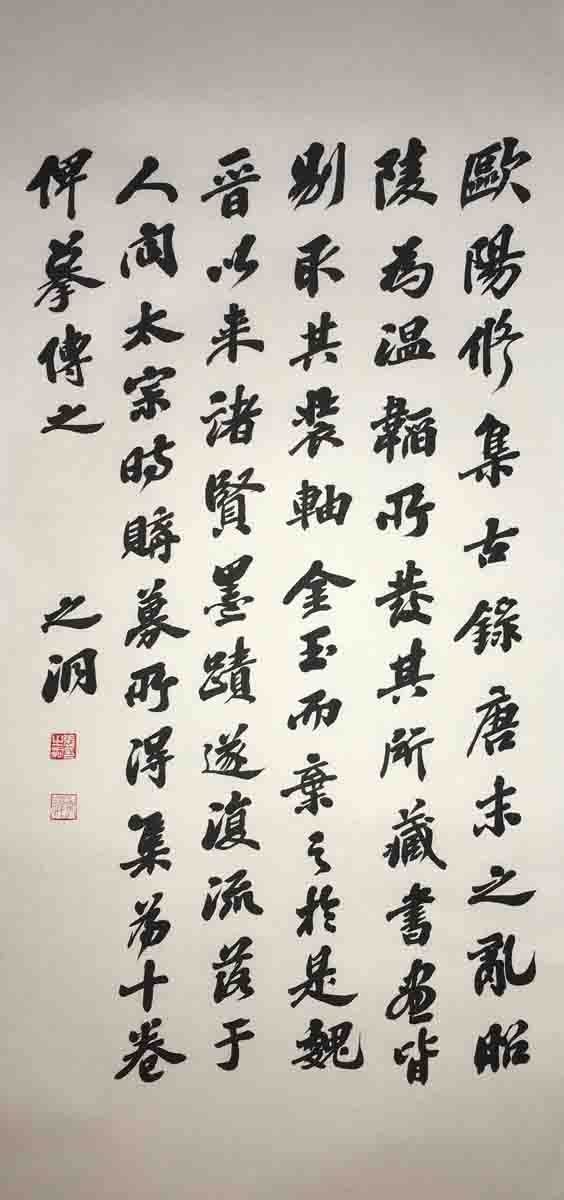 歐陽修集古錄唐末之亂昭
陵為温韜所發其所藏書画皆
剔取其裝軸金玉而棄之於是魏
晉以来諸賢墨蹟遂復流落于
人间太宗時購募所得集為十卷
俾摹傳之
之洞